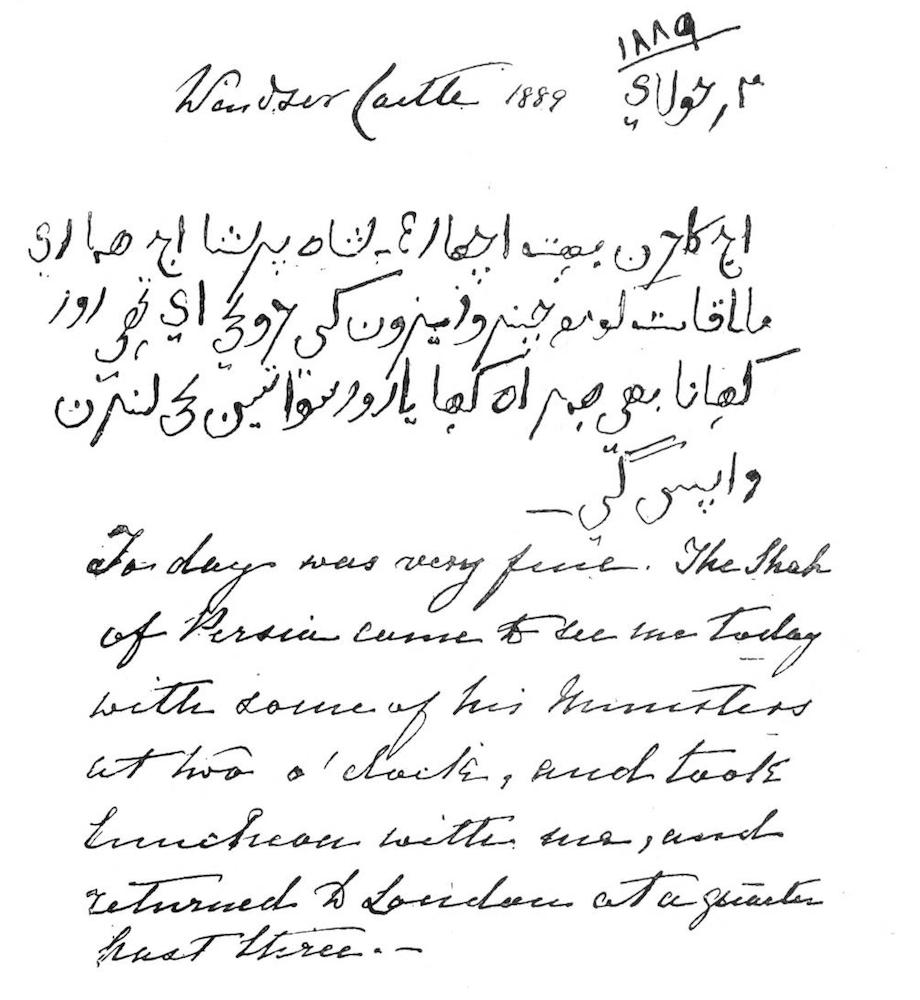 Windsor Castle 1889
۱۸۸۹
۳ر جولاي
اج کا دن بہت اچھا رہا۔ شاہ پرشا اج ہماری
ملاقات کو مع چند وزیرون کی دو بجی ای تھی اور
کھانا بھی ہمراہ کھایا اور سوا تین بجی لندن
واپس گئی ۔
To day was very fine. The Shah
of Persia came to see me today
with some of his Ministers
at two o'clock, and took
luncheon with me, and
returned to London at a quarter
past three. —